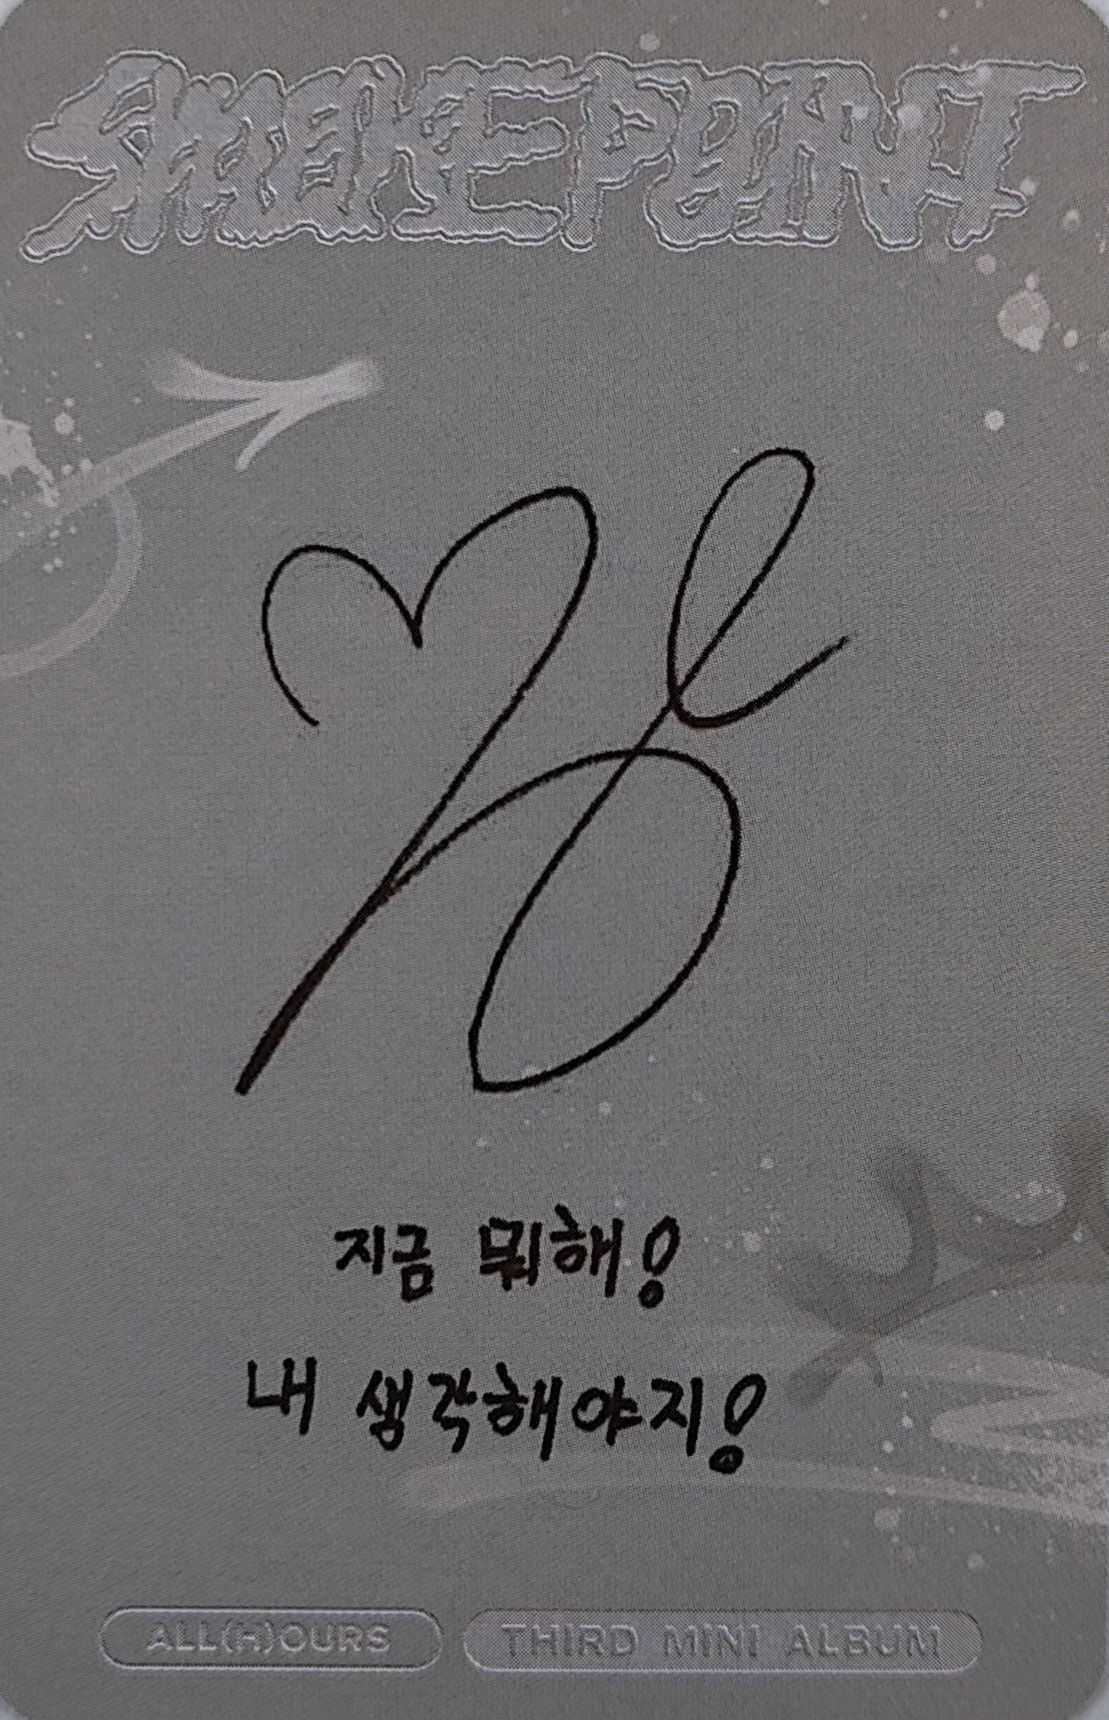 SMOKE POINT
지금 뭐해!
내 생각해야지!
ALL(H)OURS THIRD MINI ALBUM